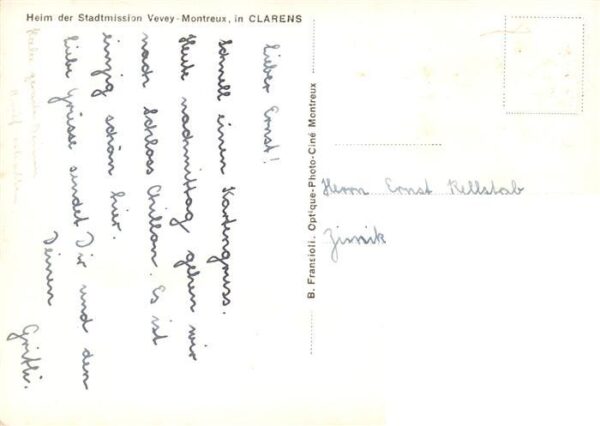 Heim der Stadtmission Vevey-Montreux, in CLARENS
Lieber Ernst!
Schnell einen Kartengruss.
Heute nachmittag gehen wir
nach Schloss Chillon. Es ist
einzig schön hier.
Liebe Grüsse sendet Dir und den
Deinen
Gritli.
B. Fransioli. Optique-Photo-Ciné Montreux
Herrn Ernst Rellstab